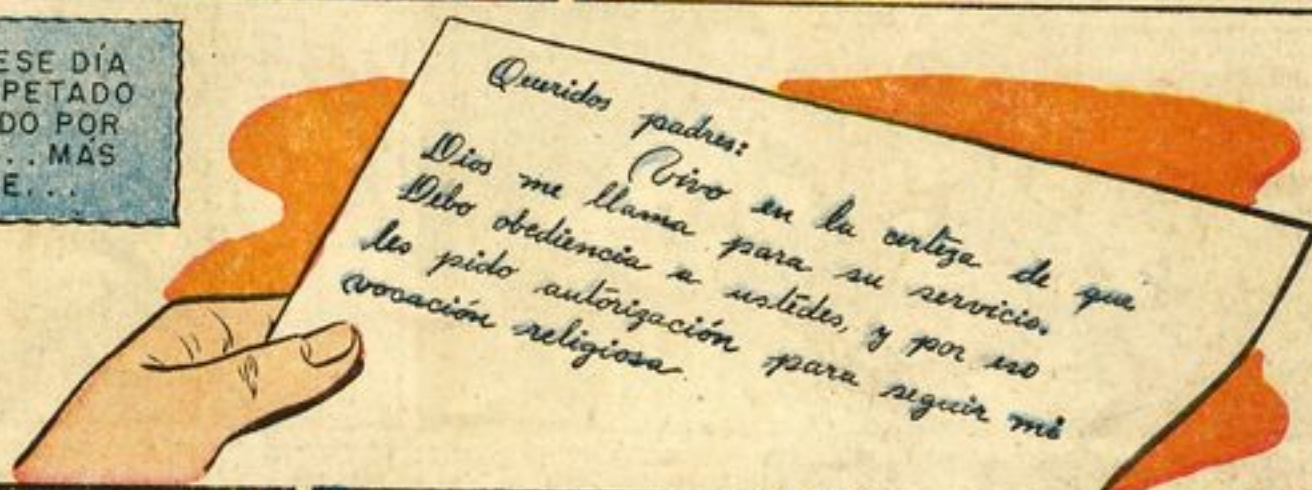 ESE DÍA
PETADO
DO POR
... MÁS
E...
Queridos padres:
Vivo en la certeza de que
Dios me llama para su servicio.
Debo obediencia a ustedes, y por eso
les pido autorización para seguir mi
vocación religiosa.